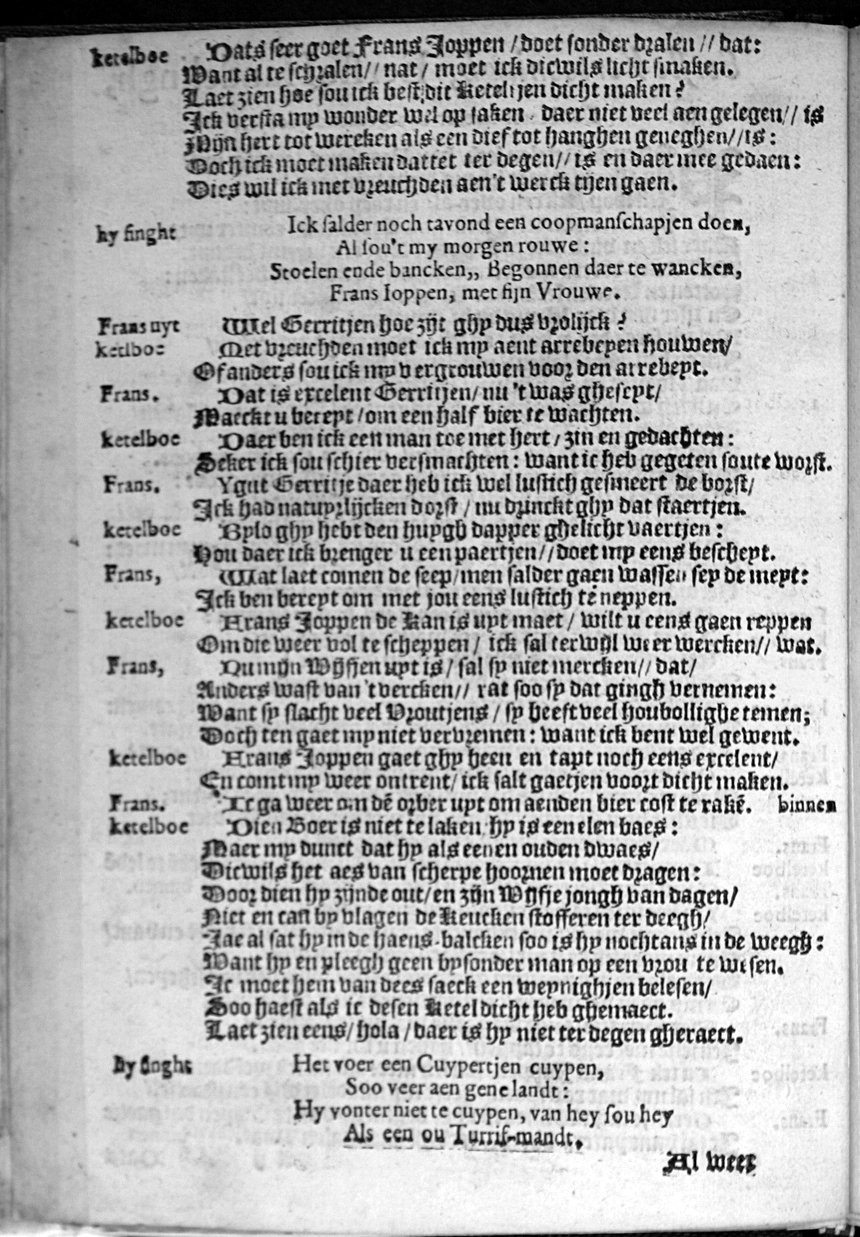 ketelboe Dats seer goet Frans Joppen / doet sonder dralen // dat:
Want al te schralen // nat / moet ick dicwils licht smaken.
Laet zien hoe sou ick best dit Ketelijen dicht maken?
Ick versta my wonder wel op saken daer niet veel aen gelegen // is
Mijn hert tot wercken als een dief tot hanghen geneghen // is:
Doch ick moet maken dattet ter degen // is en daer mee gedaen:
Dies wil ick met vreuchden aen't werck tijen gaen.
hy singht Ick salder noch tavond een coopmanschapjen doen,
Al sou't my morgen rouwe:
Stoelen ende bancken,, Begonnen daer te wancken,
Frans Ioppen, met sijn Vrouwe.
Frans uyt Wel Gerritjen hoe zijt ghy dus vrolijck?
ketlboe Met vreuchden moet ick my aent arrebeyen houwen /
Of anders sou ick my vergrouwen voor den arrebeyt.
Frans. Dat is excelent Gerritjen / nu 't was gheseyt /
Maeckt u bereyt / om een half bier te wachten.
ketelboe Daer ben ick een man toe met hert / zin en gedachten:
Seker ick sou schier versmachten: want ic heb gegeten soute worst.
Frans. Ygut Gerritje daer heb ick wel lustich gesmeert de borst /
Ick had natuyrlijcken dorst / nu drinckt ghy dat staertjen.
ketelboe Bylo ghy hebt den huygh dapper ghelicht vaertjen:
Hou daer ick brenger u een paertjen // doet my eens bescheyt.
Frans, Wat laet comen de seep / men salder gaen wassen sey de meyt:
Ick ben bereyt om met jou eens lustich te neppen.
ketelboe Frans Joppen de Kan is uyt maet / wilt u eens gaen reppen
Om die weer vol te scheppen / ick sal terwijl weer wercken // wat.
Frans, Nu mijn Wijfjen uyt is / sal sy niet mercken // dat /
Anders wast van 't vercken // rat soo sy dat gingh vernemen:
Want sy slacht veel Vroutjens / sy heeft veel houbollighe temen;
Doch ten gaet my niet vervremen: want ick bent wel gewent.
ketelboe Frans Joppen gaet ghy heen en tapt noch eens excelent /
En comt my weer ontrent / ick salt gaetjen voort dicht maken.
Frans. Ic ga weer om dē orber uyt om aenden bier cost te rakē. binnen
ketelboe Dien Boer is niet te laken hy is een elen baes:
Maer my dunct dat hy als eenen ouden dwaes /
Dicwils het aes van scherpe hoornen moet dragen:
Door dien hy zijnde out / en zijn Wijfje jongh van dagen /
Niet en can by vlagen de Keucken stofferen ter deegh /
Jae al sat hy in de haens-balcken soo is hy nochtans in de weegh:
Want hy en pleegh geen bysonder man op een vrou te wesen.
Ic moet hem van dees saeck een weynighjen belesen /
Soo haest als ic desen Ketel dicht heb ghemaect.
Laet zien eens / hola / daer is hy niet ter degen gheraect.
Hy singht Het voer een Cuypertjen cuypen,
Soo veer aen gene landt:
Hy vonter niet te cuypen, van hey sou hey
Als een ou Turrif-mandt.
Al weer